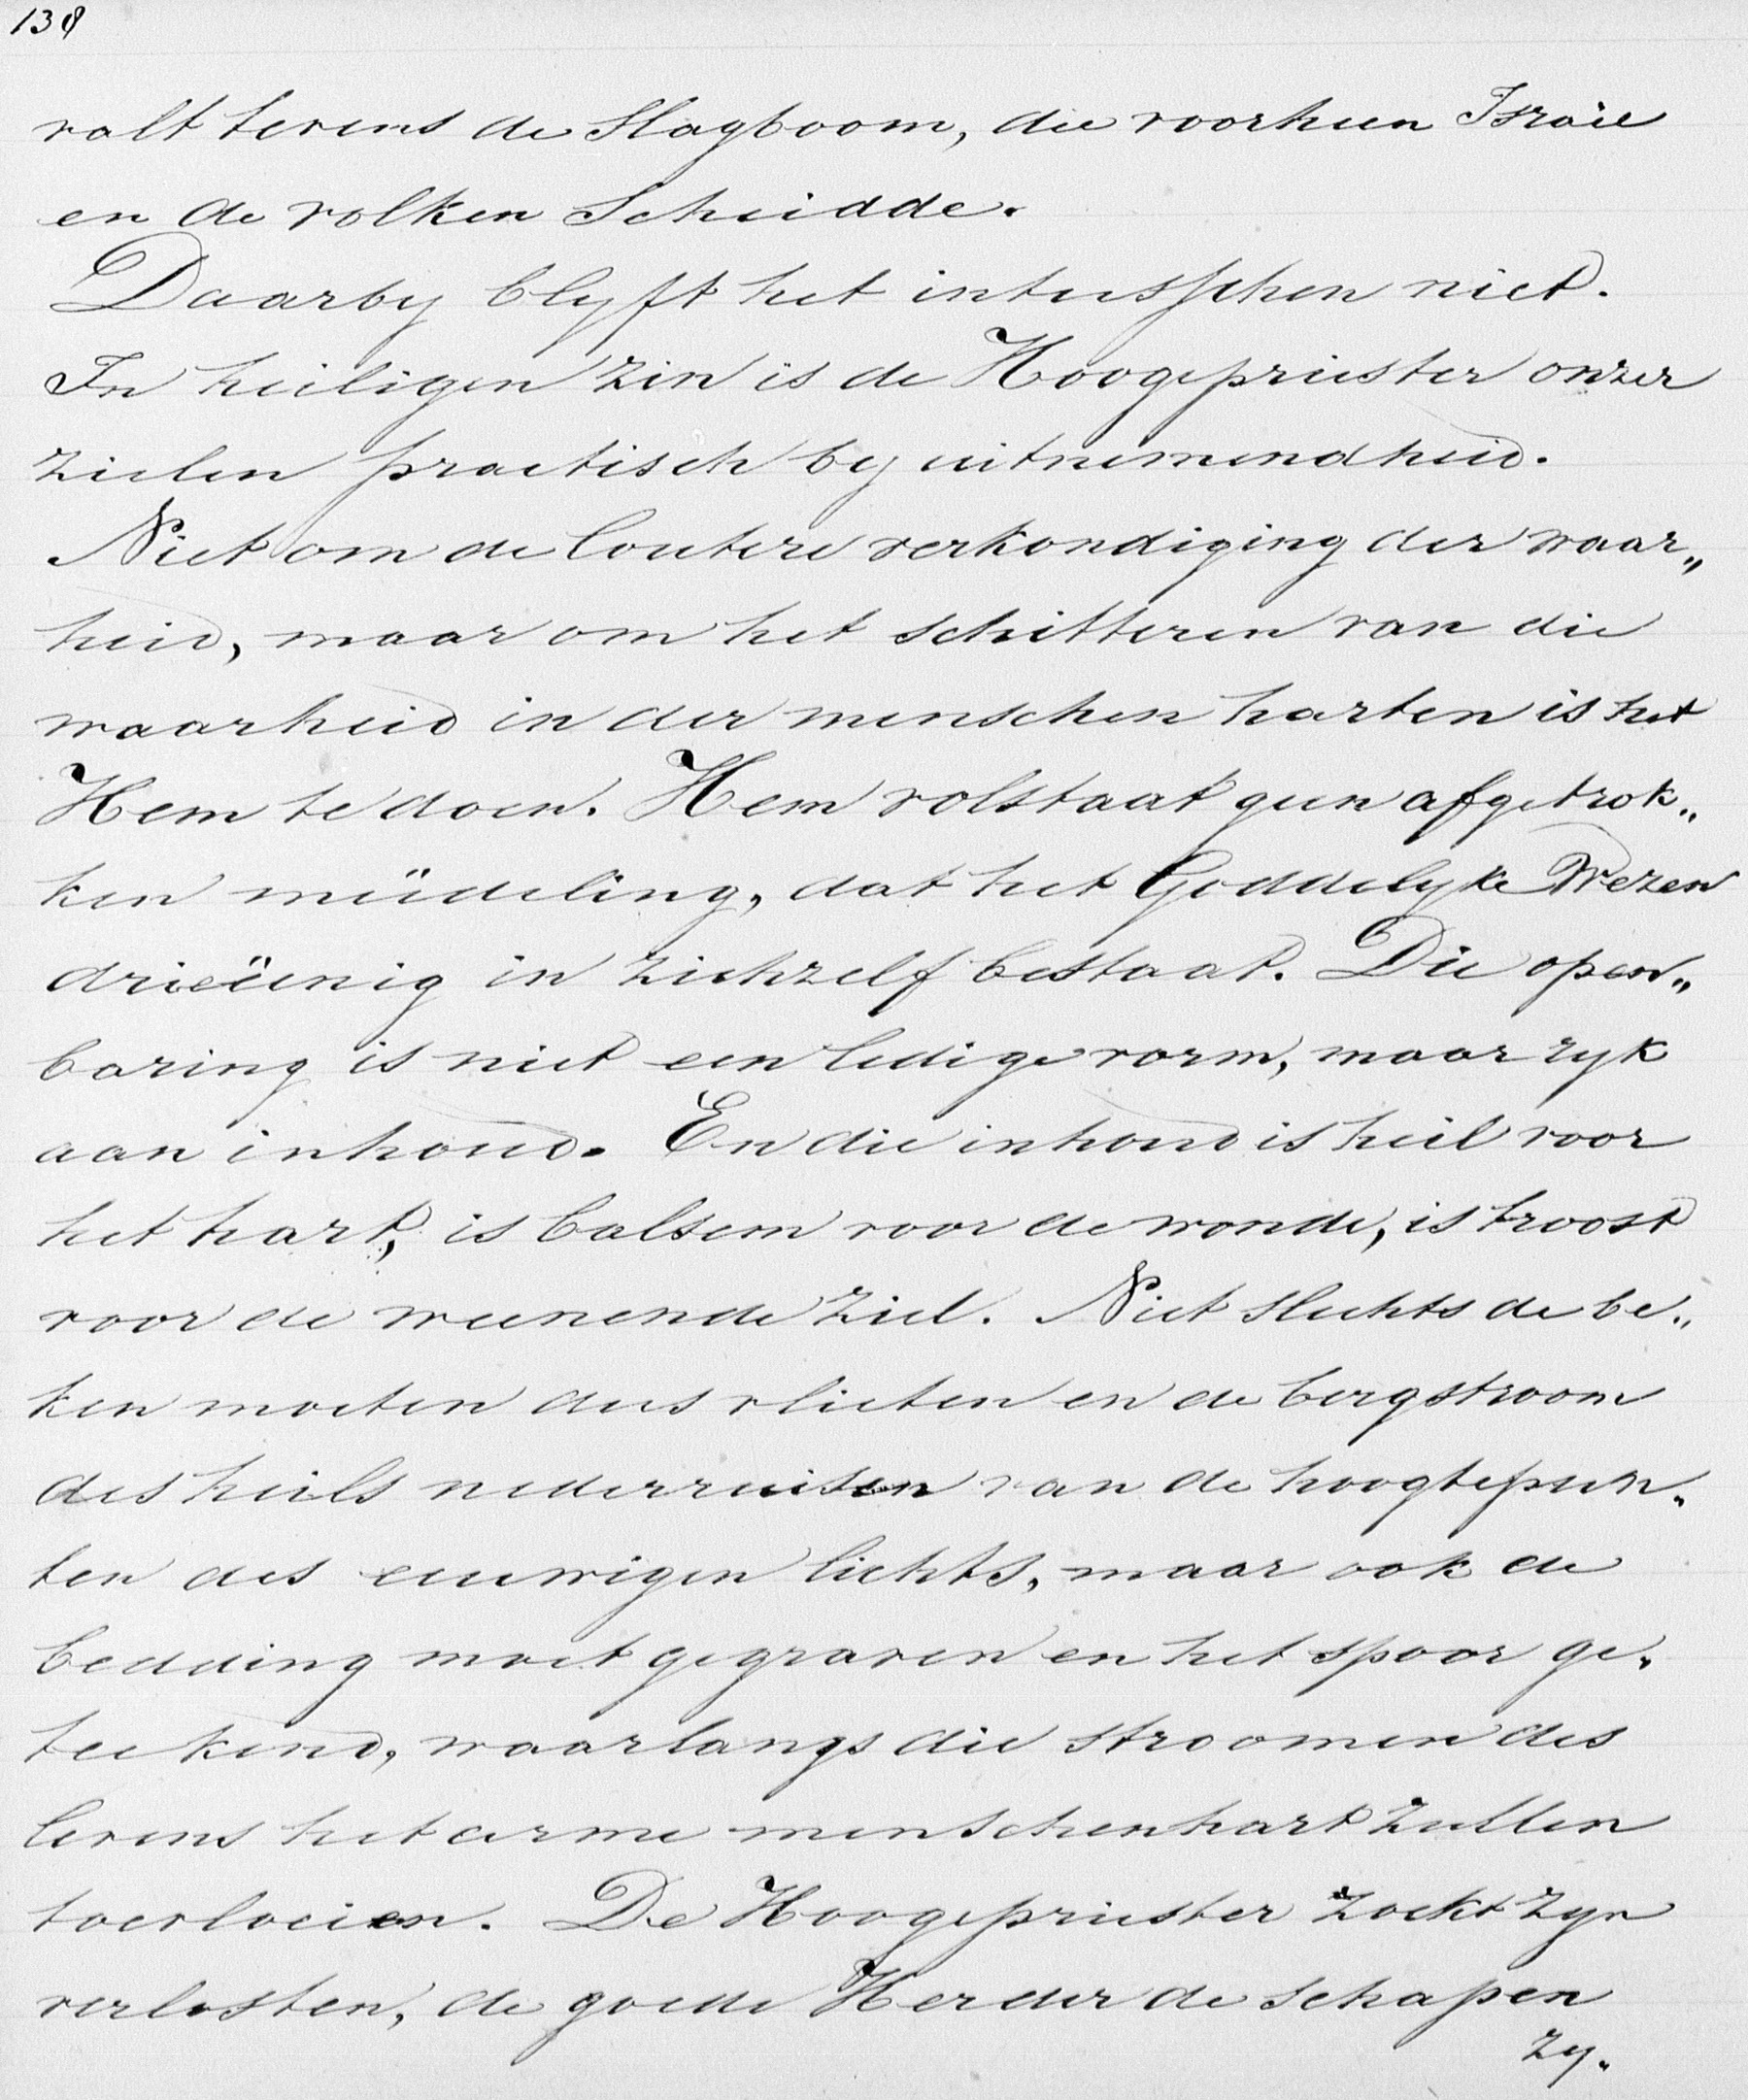 138
valt tevens de Slagboom, die voorheen Israël
en de volken Scheidde.
Daarby blyft het intusschen niet.
In heiligen zin is de Hoogepriester onzer
zielen practisch by uitnemendheid.
Niet om de loutere verkondiging der waar„
heid, maar om het schitteren van die
waarheid in der menschen harten is het
Hem te doen. Hem volstaat geen afgetrok„
ken meêdeeling, dat het Goddelyke Wezen
drieëenig in zichzelf bestaat. Die open„
baring is niet een ledige vorm, maar ryk
aan inhoud. En die inhoud is heil voor
het hart, is balsem voor de wonde, is troost
voor de weenende ziel. Niet slechts de be„
ken moeten dus vlieten en de bergstroom
des heils nederruisen van de hoogtepun„
ten des eeuwigen lichts, maar ook de
bedding moet gegraven en het spoor ge„
teekend, waarlangs die stroomen des
levens het arme menschenhart zullen
toevloeien. De Hoogepriester zoekt zyn
verlosten, de goede Herder de schapen
zy.